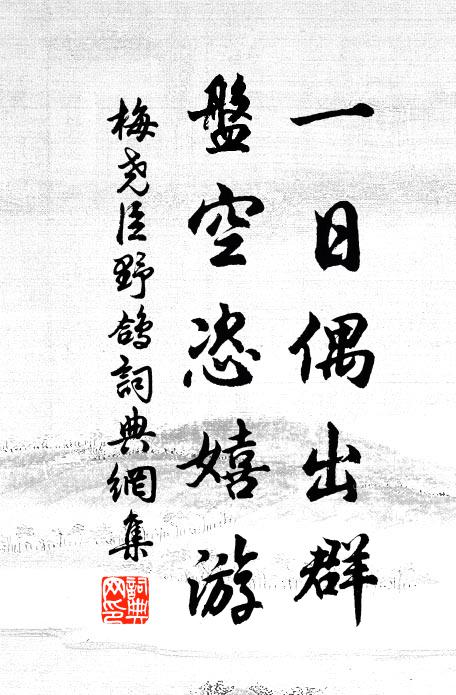 一日偶出群
盤空恣嬉游
梅堯臣野鴿詞典網集
詞典網印